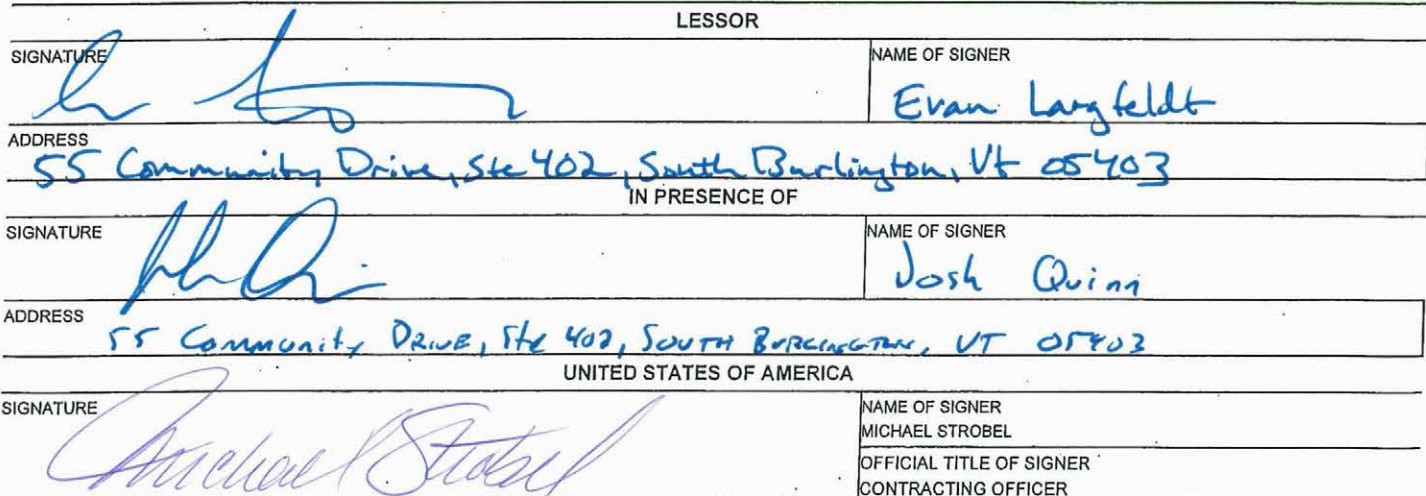 LESSOR
SIGNATURE
NAME OF SIGNER
Evan Langfeldt
ADDRESS
55 Community Drive, Ste 402, South Burlington, Vt 05403
IN PRESENCE OF
SIGNATURE
NAME OF SIGNER
Josh Quinn
ADDRESS
55 Community DRIVE, Ste 402, SOUTH BURLINGTON, VT 05403
UNITED STATES OF AMERICA
SIGNATURE
Michael Strobel
NAME OF SIGNER
MICHAEL STROBEL
OFFICIAL TITLE OF SIGNER
CONTRACTING OFFICER